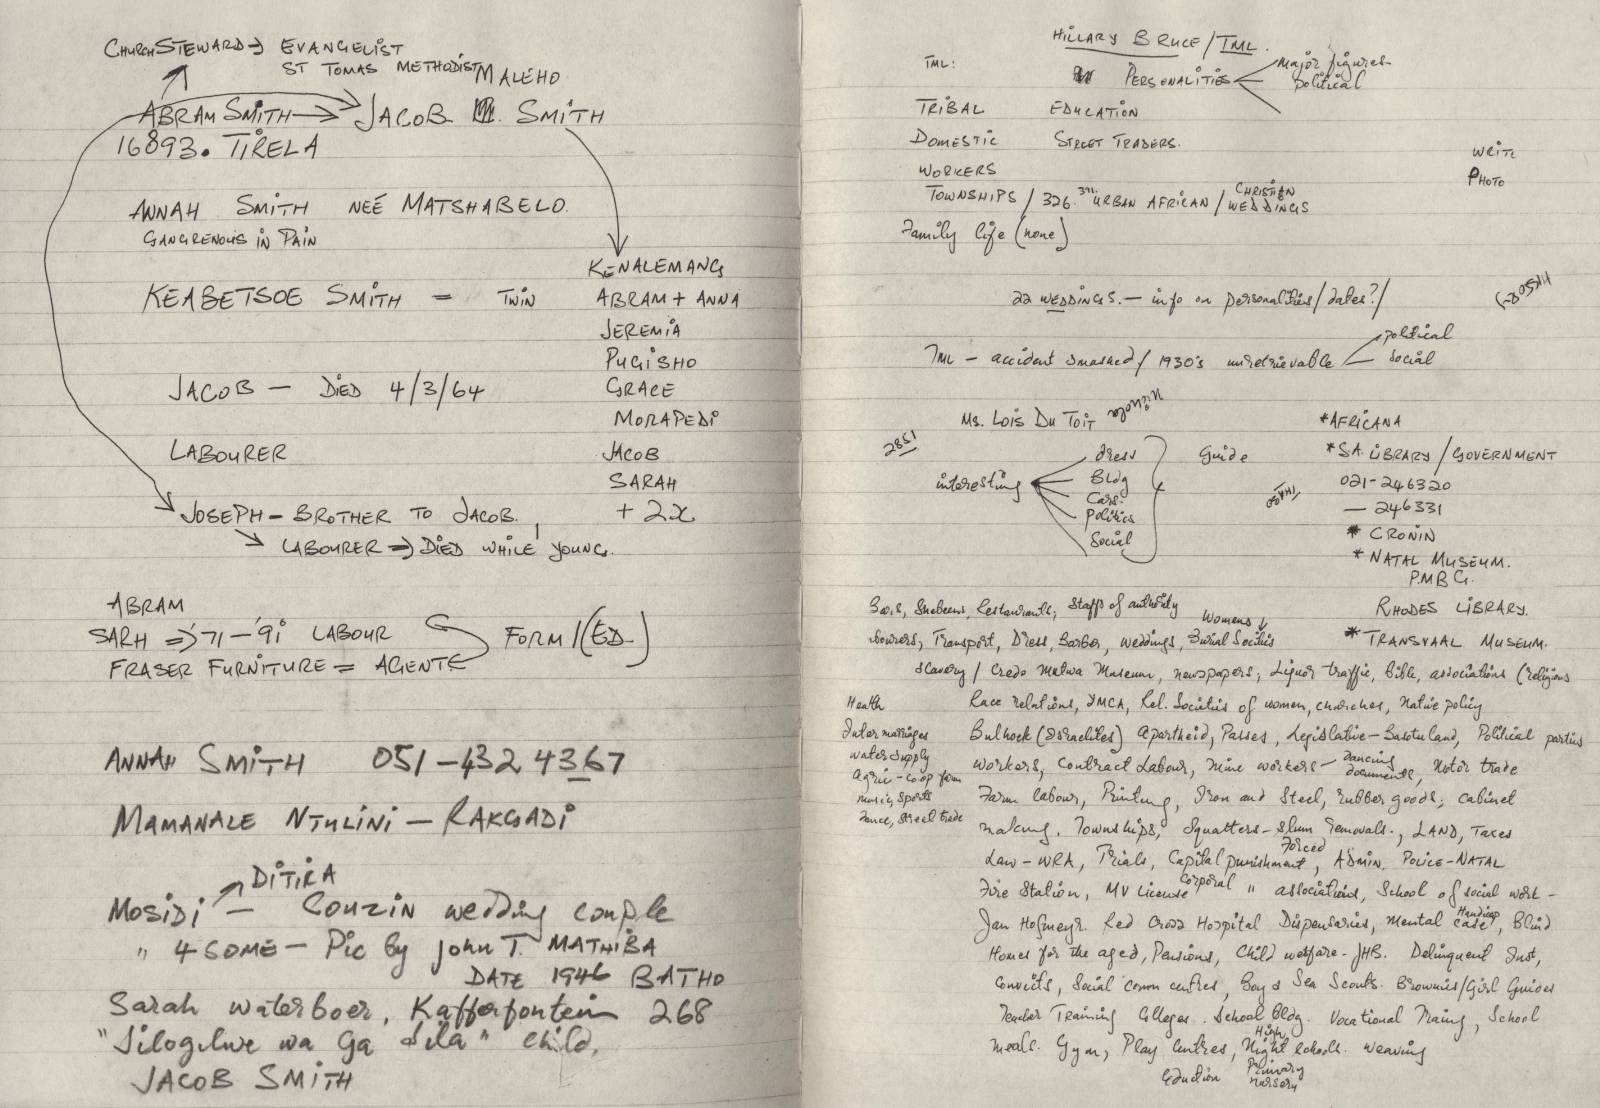 CHURCH STEWARD → EVANGELIST
ST TOMAS METHODIST
MALEHO
ABRAM SMITH → JACOB M. SMITH
16893. TIRELA
ANNAH SMITH NEÉ MATSHABELO.
GANGRENOUS IN PAIN
KENALEMANG
KEABETSOE SMITH = TWIN ABRAM + ANNA
JEREMIA
PUGISHO
JACOB — DIED 4/3/64 GRACE
MORAPEDI
LABOURER JACOB
SARAH
JOSEPH – BROTHER TO JACOB, + 2x
→ LABOURER → DIED WHILE YOUNG.
ABRAM
SARH ⇒ '71 – '91 LABOUR FORM 1 (ED.)
FRASER FURNITURE = AGENTE
ANNAH SMITH 051 – 432 4367
MAMANALE NTULINI – RAKGADI
DITIRA
MOSIDI — COUZIN wedding couple
" 4 SOME – Pic by John T. MATHIBA
DATE 1946 BATHO
Sarah waterboer, Kafferfontein 268
child.
JACOB SMITH
HILLARY BRUCE / TML.
TML: PERSONALITIES major figures
political
TRIBAL EDUCATION
DOMESTIC STREET TRADERS.
WORKERS
WRITE
PHOTO
TOWNSHIPS / 326. 371. URBAN AFRICAN / CHRISTIAN WEDDINGS
Family life (none)
22 WEDDINGS. — info on personalities / dates? /
TML – accident smashed / 1930's unretrievable political
social
Ms. LOIS DU TOIT
2851
interesting
dress
Bldg
Cars.
politics
Social
Guide
*AFRICANA
*S.A. LIBRARY / GOVERNMENT
021-246320
— 246331
* CRONIN
* NATAL MUSEUM.
P.M.B.G.
RHODES LIBRARY.
* TRANSVAAL MUSEUM.
Shebeens, Restaurants, Staffs of authority
Womens
Transport, Dress, Barber, weddings, Burial Socities
slavery / Credo Mutwa Museum, newspapers, Liquor traffic, bible, associations (religious
Race relations, YMCA, Rel. Societies of women, churches, Native policy
Bulhoek (Israelites) Apartheid, Passes, Legislative – Basutuland, Political parties
workers, Contract Labour, mine workers – dancing documents, Motor trade
Farm labour, Printing, Iron and Steel, rubber goods, cabinet
making. Townships, Squatters – slum removals., LAND, Taxes
Forced
Law – WRA, Trials, Capital punishment, ADMIN. POLICE – NATAL
Corporal "
Fire Station, MV License associations, School of social work –
Jan Hofmeyr. Red Cross Hospital Dispensaries, Mental case, Handicap, Blind
Homes for the aged, Pensions, Child welfare – JHB. Delinquent Inst,
Convicts, Social comm centres, Boy & Sea Scouts. Brownies/Girl Guides
Teacher Training Colleges. School Bldg. Vocational Traing, School
meals. Gym, Play centres, High Night schools. weaving
Education Primary
nursery
Health
Inter marriages
water supply
Agric – co-op farm
music, sports
Dance, street trade